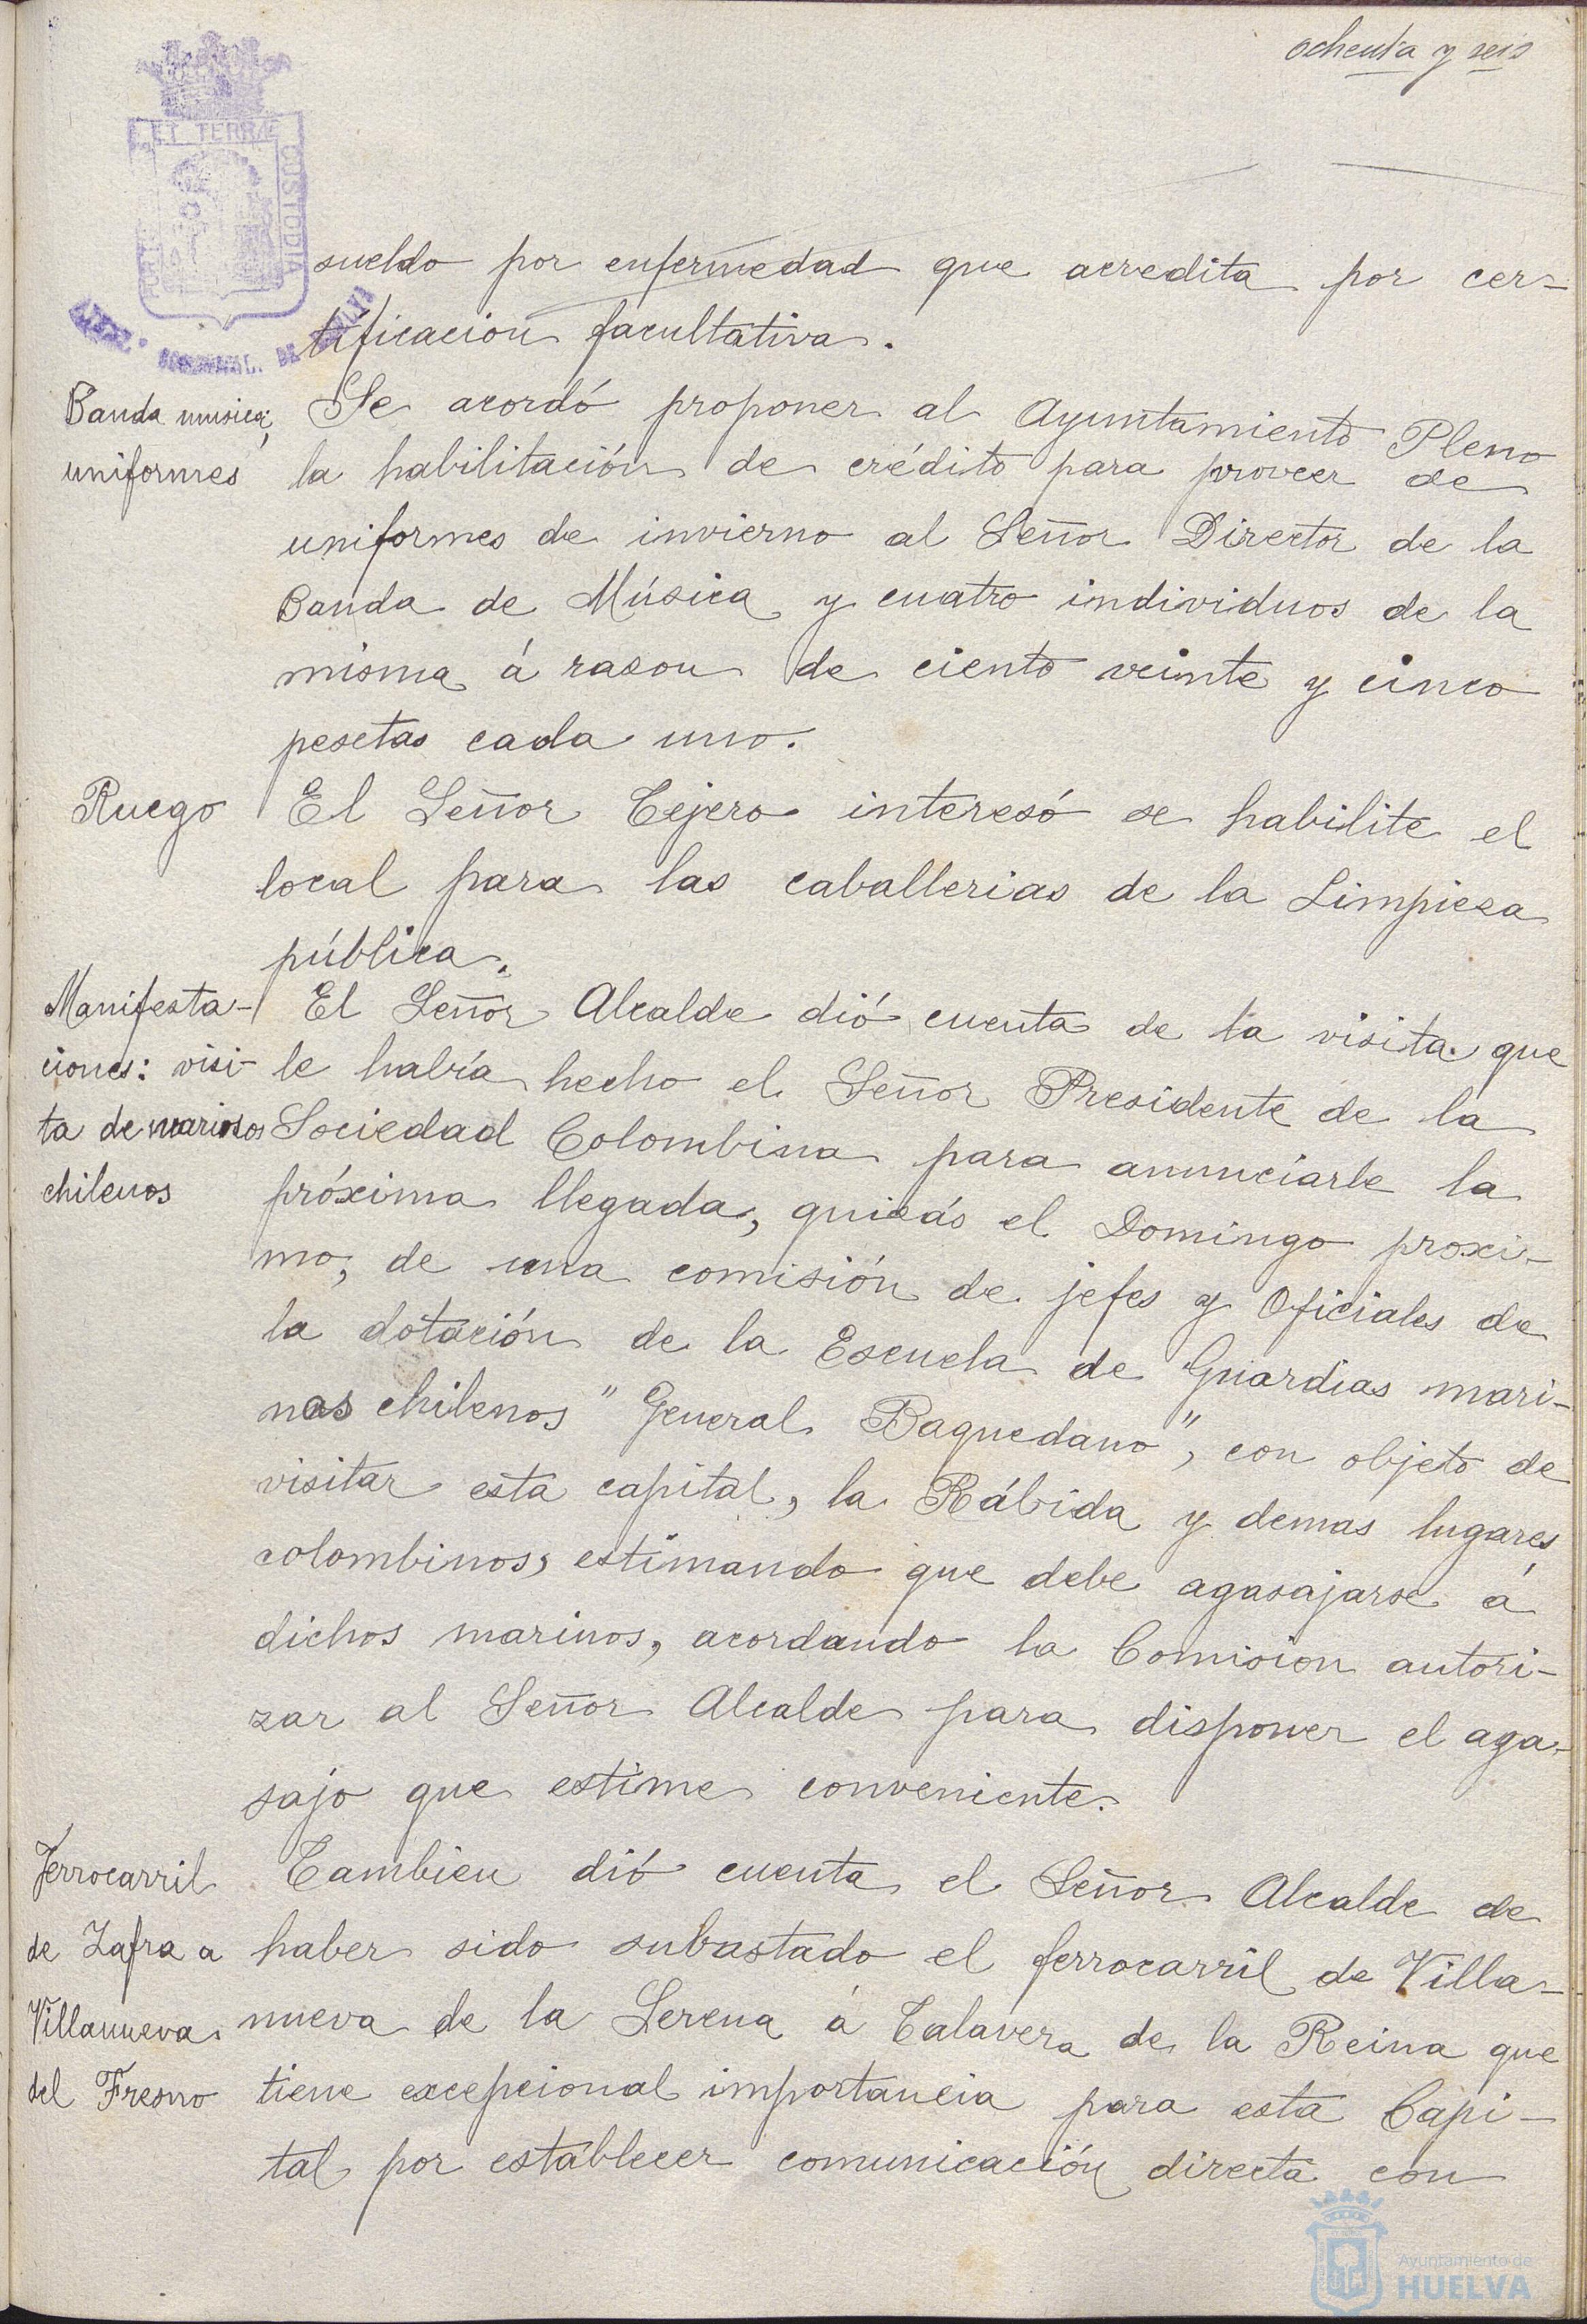 ochenta y seis
ET TERRÆ
CUSTODIA
DE
sueldo por enfermedad que acredita por cer-
tificacion facultativa.
Banda musica;
uniformes
Se acordó proponer al Ayuntamiento Pleno
la habilitación de crédito para proveer de
uniformes de invierno al Señor Director de la
Banda de Música y cuatro individuos de la
misma á razon de ciento veinte y cinco
pesetas cada uno.
Ruego
El Señor Tejero interesó se habilite el
local para las caballerias de la Limpieza
pública.
Manifesta-
ciones: visi-
ta de marinos
chilenos
El Señor Alcalde dió cuenta de la visita que
le había hecho el Señor Presidente de la
Sociedad Colombina para anunciarle la
próxima llegada, quizás el Domingo proxi-
mo, de una comisión de jefes y Oficiales de
la dotación de la Escuela de Guardias mari-
nas chilenos "General Baquedano", con objeto de
visitar esta capital, la Rábida y demas lugares
colombinos, estimando que debe agasajarse á
dichos marinos, acordando la Comision autori-
zar al Señor Alcalde para disponer el aga-
sajo que estime conveniente.
Ferrocarril
de Zafra a
Villanueva
del Fresno
Tambien dió cuenta el Señor Alcalde de
haber sido subastado el ferrocarril de Villa-
nueva de la Serena á Talavera de la Reina que
tiene excepcional importancia para esta Capi-
tal por establecer comunicación directa con
Ayuntamiento de
HUELVA